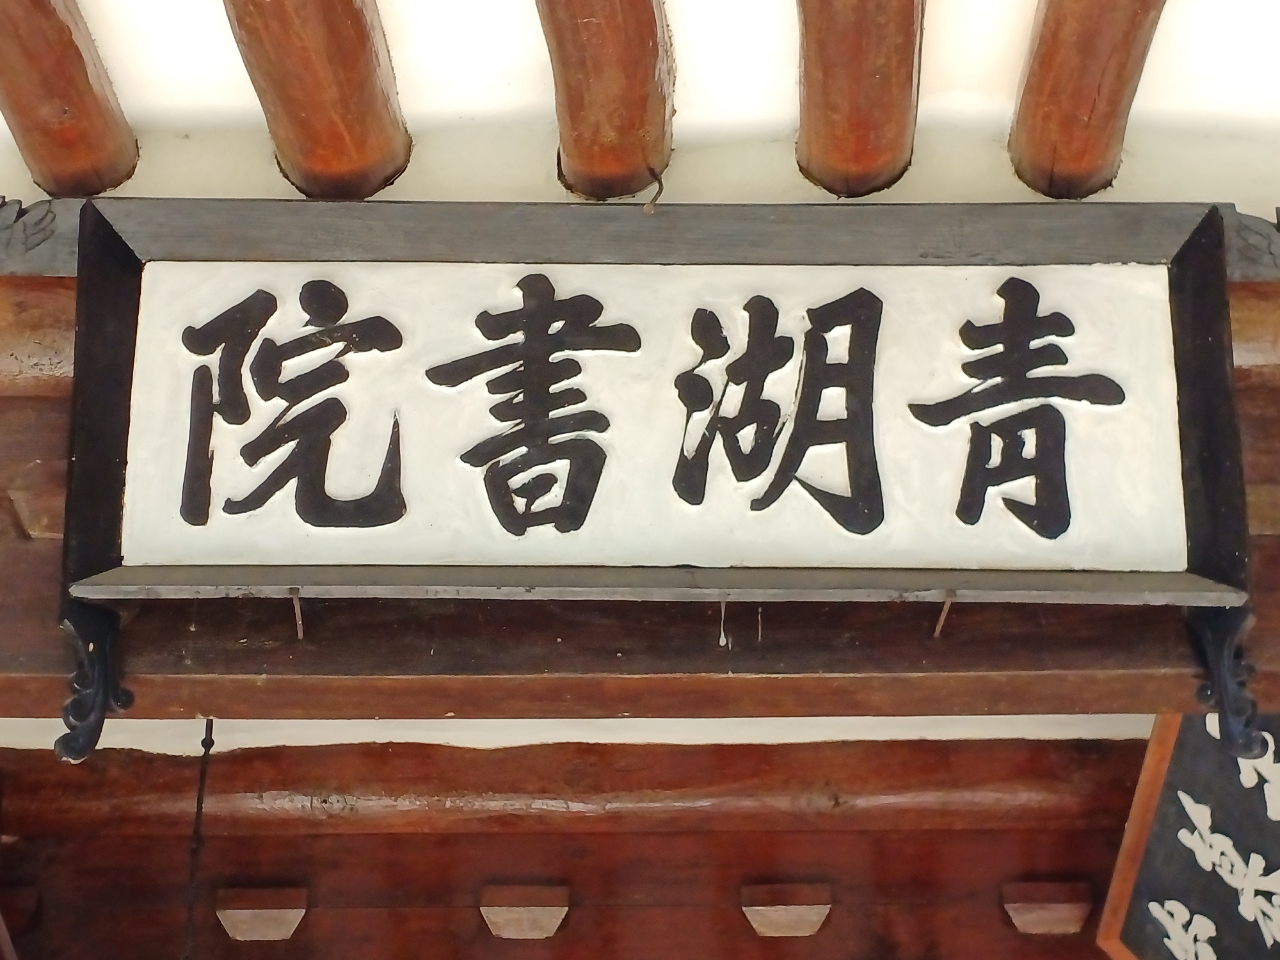 青湖書院